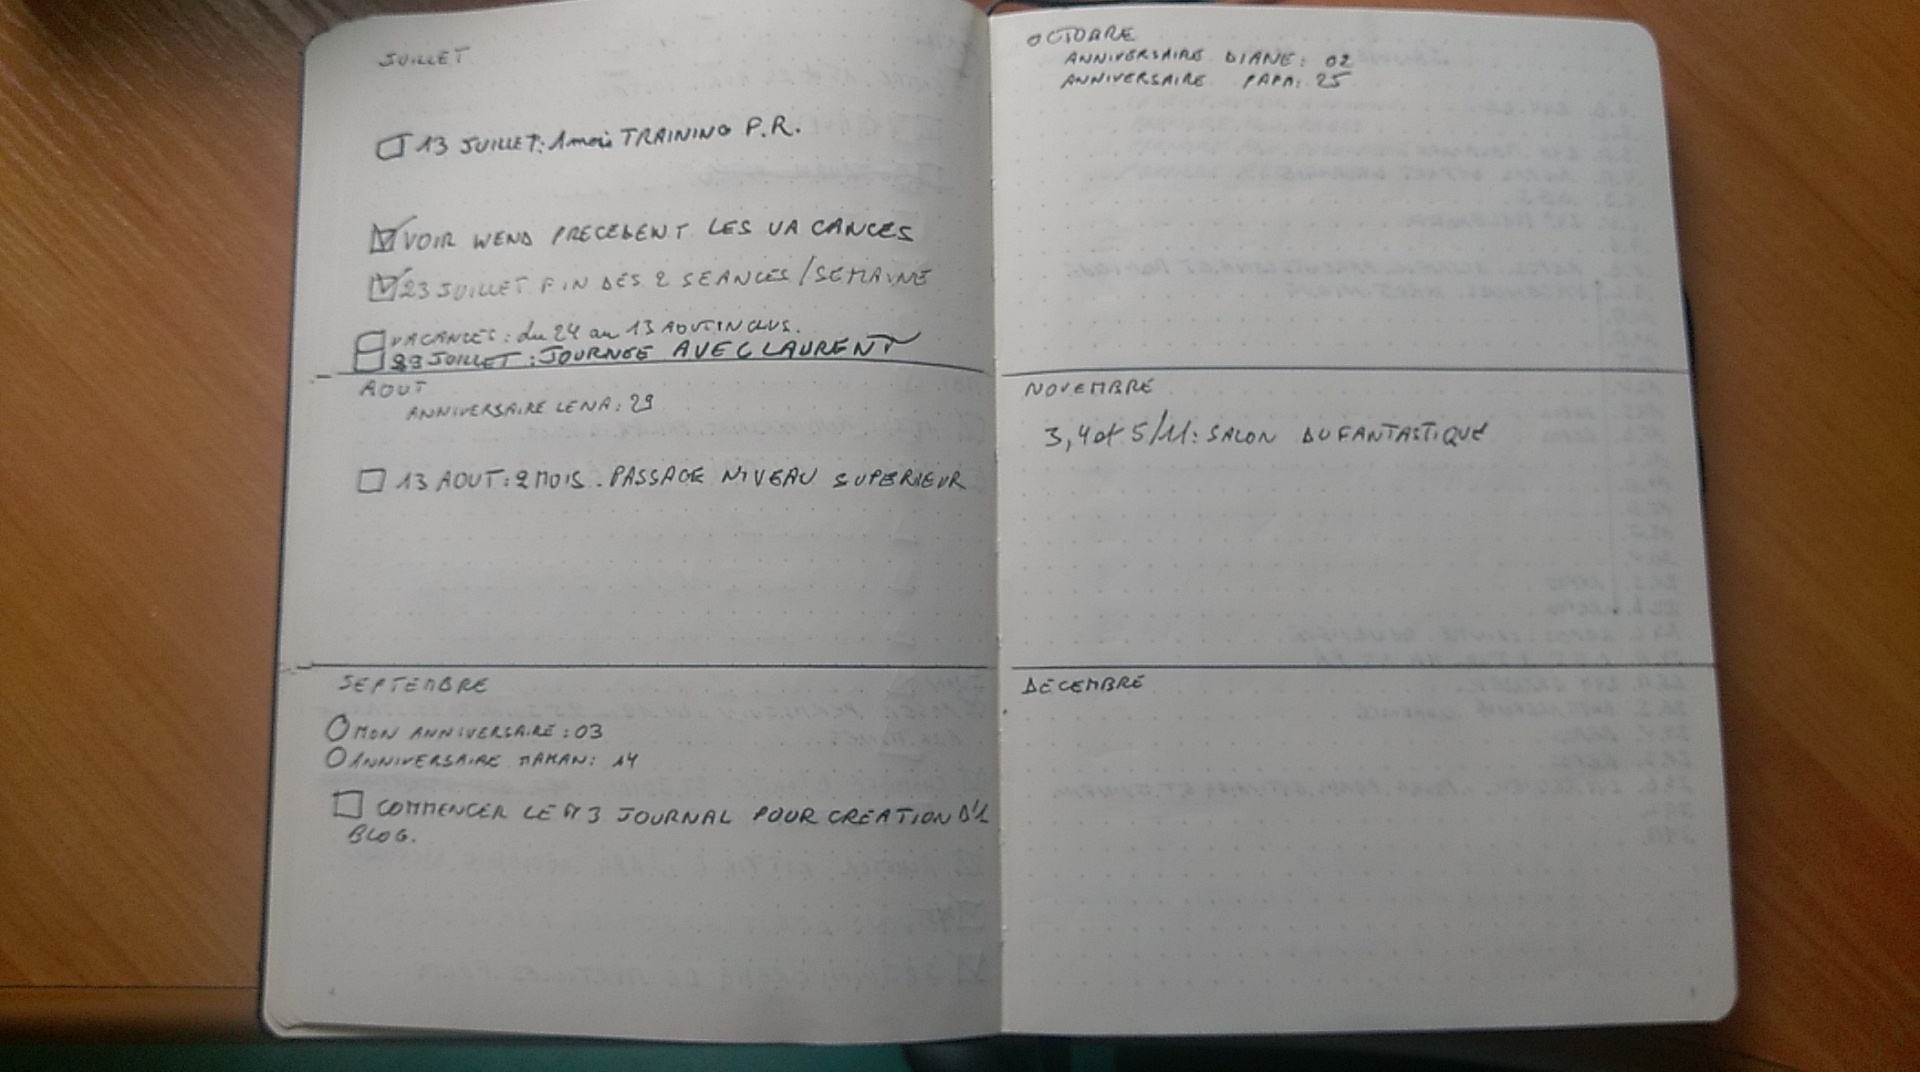 JUILLET
13 JUILLET: 1 mois TRAINING P.R.
VOIR WEND PRECEDENT LES VACANCES
23 JUILLET FIN DES 2 SEANCES/SEMAINE
VACANCES: du 24 au 13 AOUT INCLUS.
JUILLET: JOURNEE AVEC LAURENT
AOUT
ANNIVERSAIRE LENA: 29
13 AOUT: 2 MOIS. PASSAGE NIVEAU SUPERIEUR
SEPTEMBRE
MON ANNIVERSAIRE: 03
ANNIVERSAIRE MAMAN: 14
COMMENCER LE 3 JOURNAL POUR CREATION D'1
BLOG.
OCTOBRE
ANNIVERSAIRE DIANE: 02
ANNIVERSAIRE PAPA: 25
NOVEMBRE
3, 4 et 5/11: SALON DU FANTASTIQUE
DECEMBRE